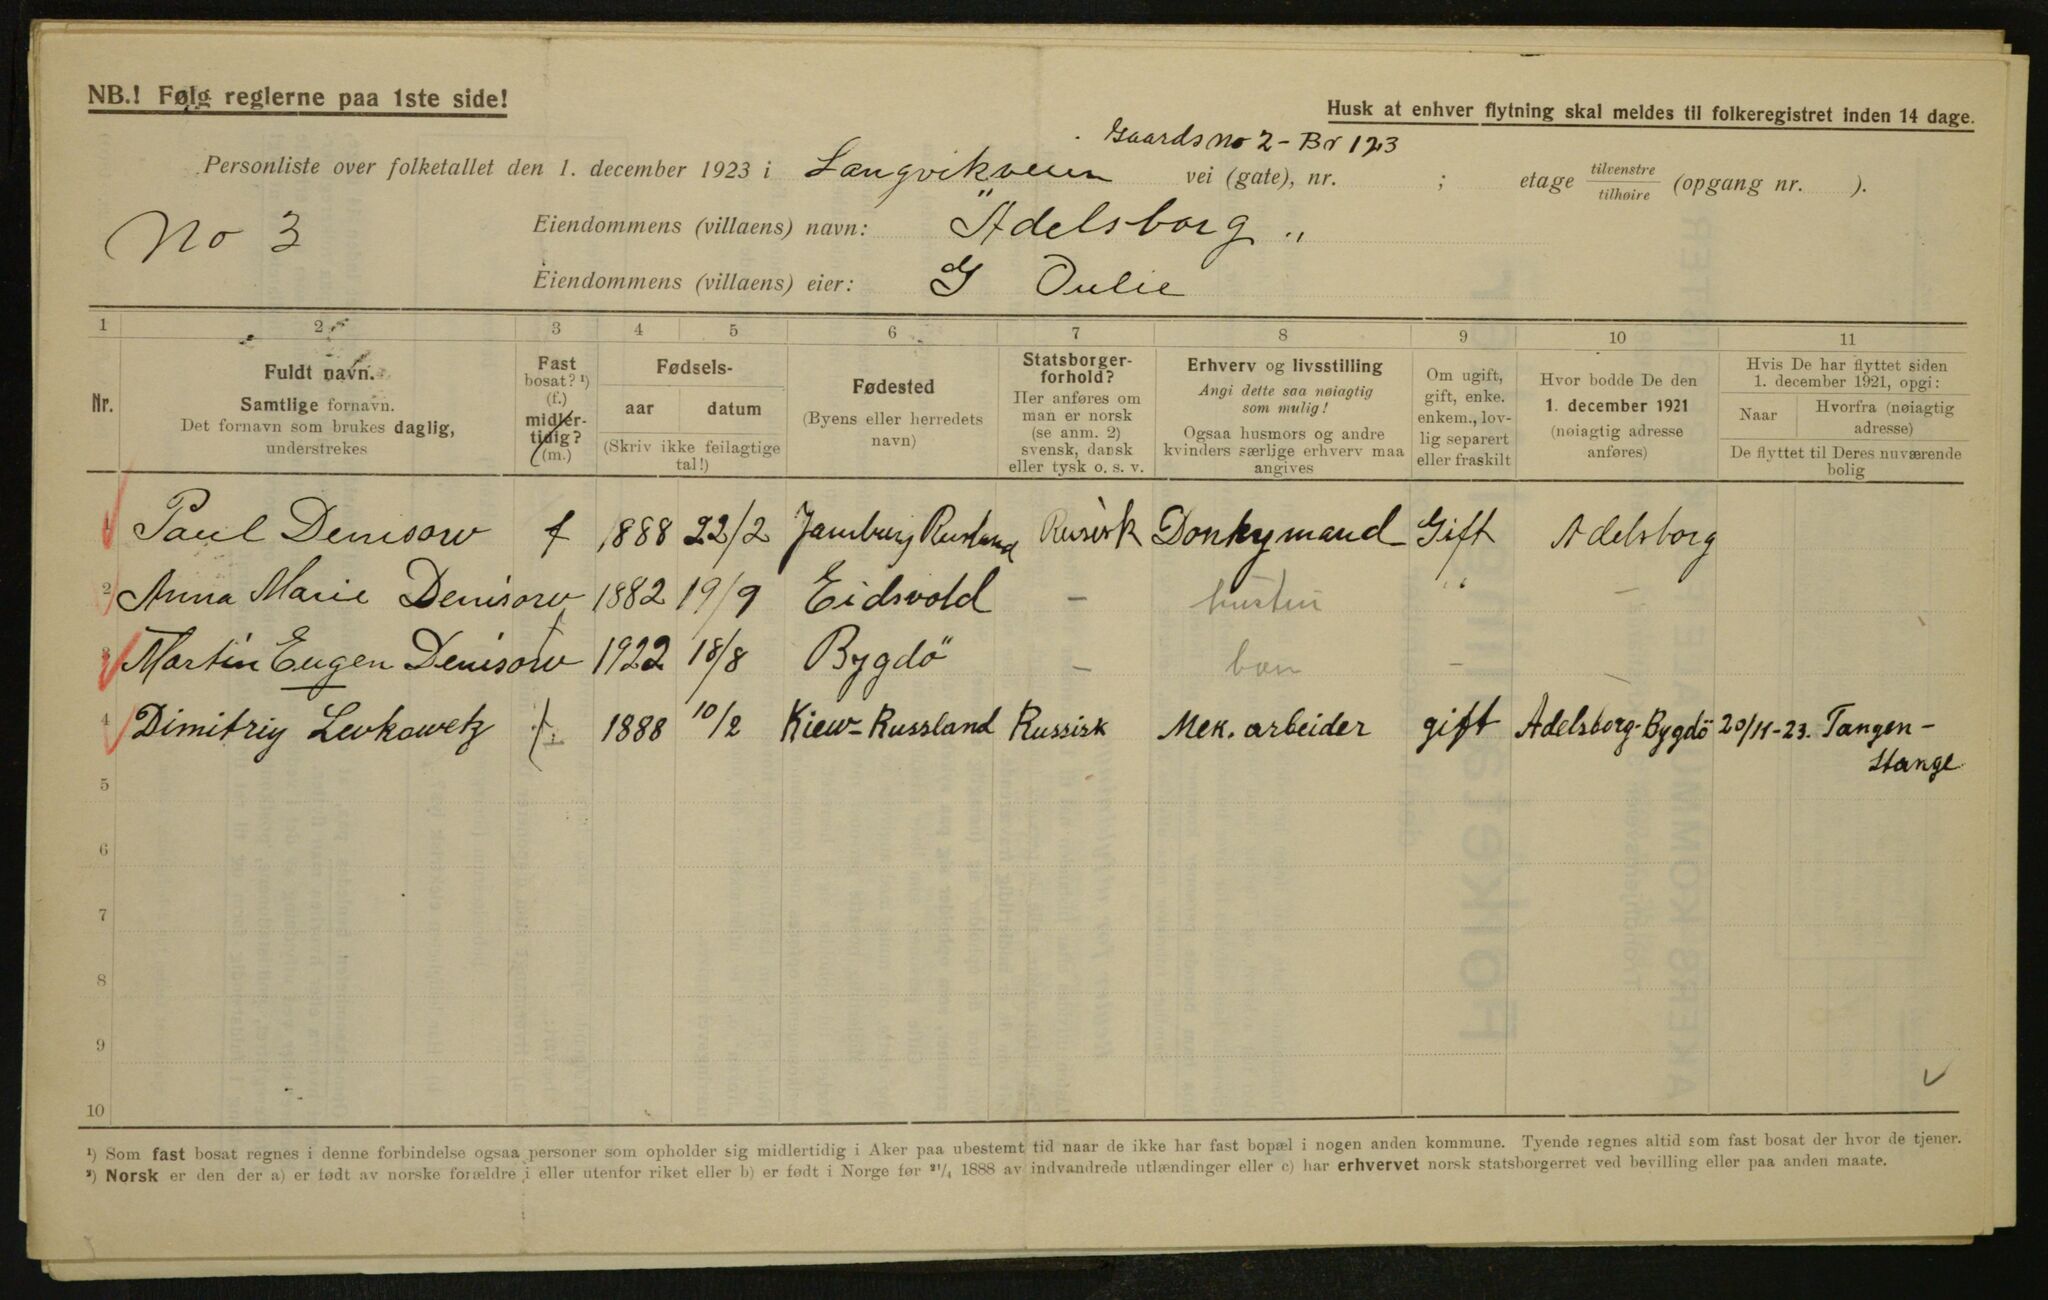 NB.! Følg reglerne paa 1ste side!
Husk at enhver flytning skal meldes til folkeregistret inden 14 dage.
Gaards no 2 - Br 123
Personliste over folketallet den 1. december 1923 i Langvikveien vei (gate), nr. ; etage tilvenstre / tilhøire (opgang nr. ).
No 3
Eiendommens (villaens) navn: "Adelsborg"
Eiendommens (villaens) eier: G Oulie
1 2 3 4 5 6 7 8 9 10 11
Nr.
Fuldt navn.
Samtlige fornavn.
Det fornavn som brukes daglig,
understrekes
Fast
bosat? ¹)
(f.)
midler-
tidig?
(m.)
Fødsels-
aar datum
(Skriv ikke feilagtige
tal!)
Fødested
(Byens eller herredets
navn)
Statsborger-
forhold?
Her anføres om
man er norsk
(se anm. 2)
svensk, dansk
eller tysk o. s. v.
Erhverv og livsstilling
Angi dette saa nøiagtig
som mulig!
Ogsaa husmors og andre
kvinders særlige erhverv maa
angives
Om ugift,
gift, enke.
enkem., lov-
lig separert
eller fraskilt
Hvor bodde De den
1. december 1921
(nøiagtig adresse
anføres)
Hvis De har flyttet siden
1. december 1921, opgi:
Naar Hvorfra (nøiagtig
adresse)
De flyttet til Deres nuværende
bolig
1 Paul Denisow f 1888 22/2 Jamburg Rusland Rusisk Donkymand Gift Adelsborg
2 Anna Marie Denisow 1882 19/9 Eidsvold - hustru " -
3 Martin Eugen Denisow f 1922 18/8 Bygdö - barn -
4 Dimitriy Levkowetz f. 1888 10/2 Kiew-Russland Russisk Mek. arbeider gift Adelsborg-Bygdö 20/11-23. Tangen-
Stange
5
6
7
8
9
10
¹) Som fast bosat regnes i denne forbindelse ogsaa personer som opholder sig midlertidig i Aker paa ubestemt tid naar de ikke har fast bopæl i nogen anden kommune. Tyende regnes altid som fast bosat der hvor de tjener.
²) Norsk er den der a) er født av norske forældre i eller utenfor riket eller b) er født i Norge før ²¹/₄ 1888 av indvandrede utlændinger eller c) har erhvervet norsk statsborgerret ved bevilling eller paa anden maate.